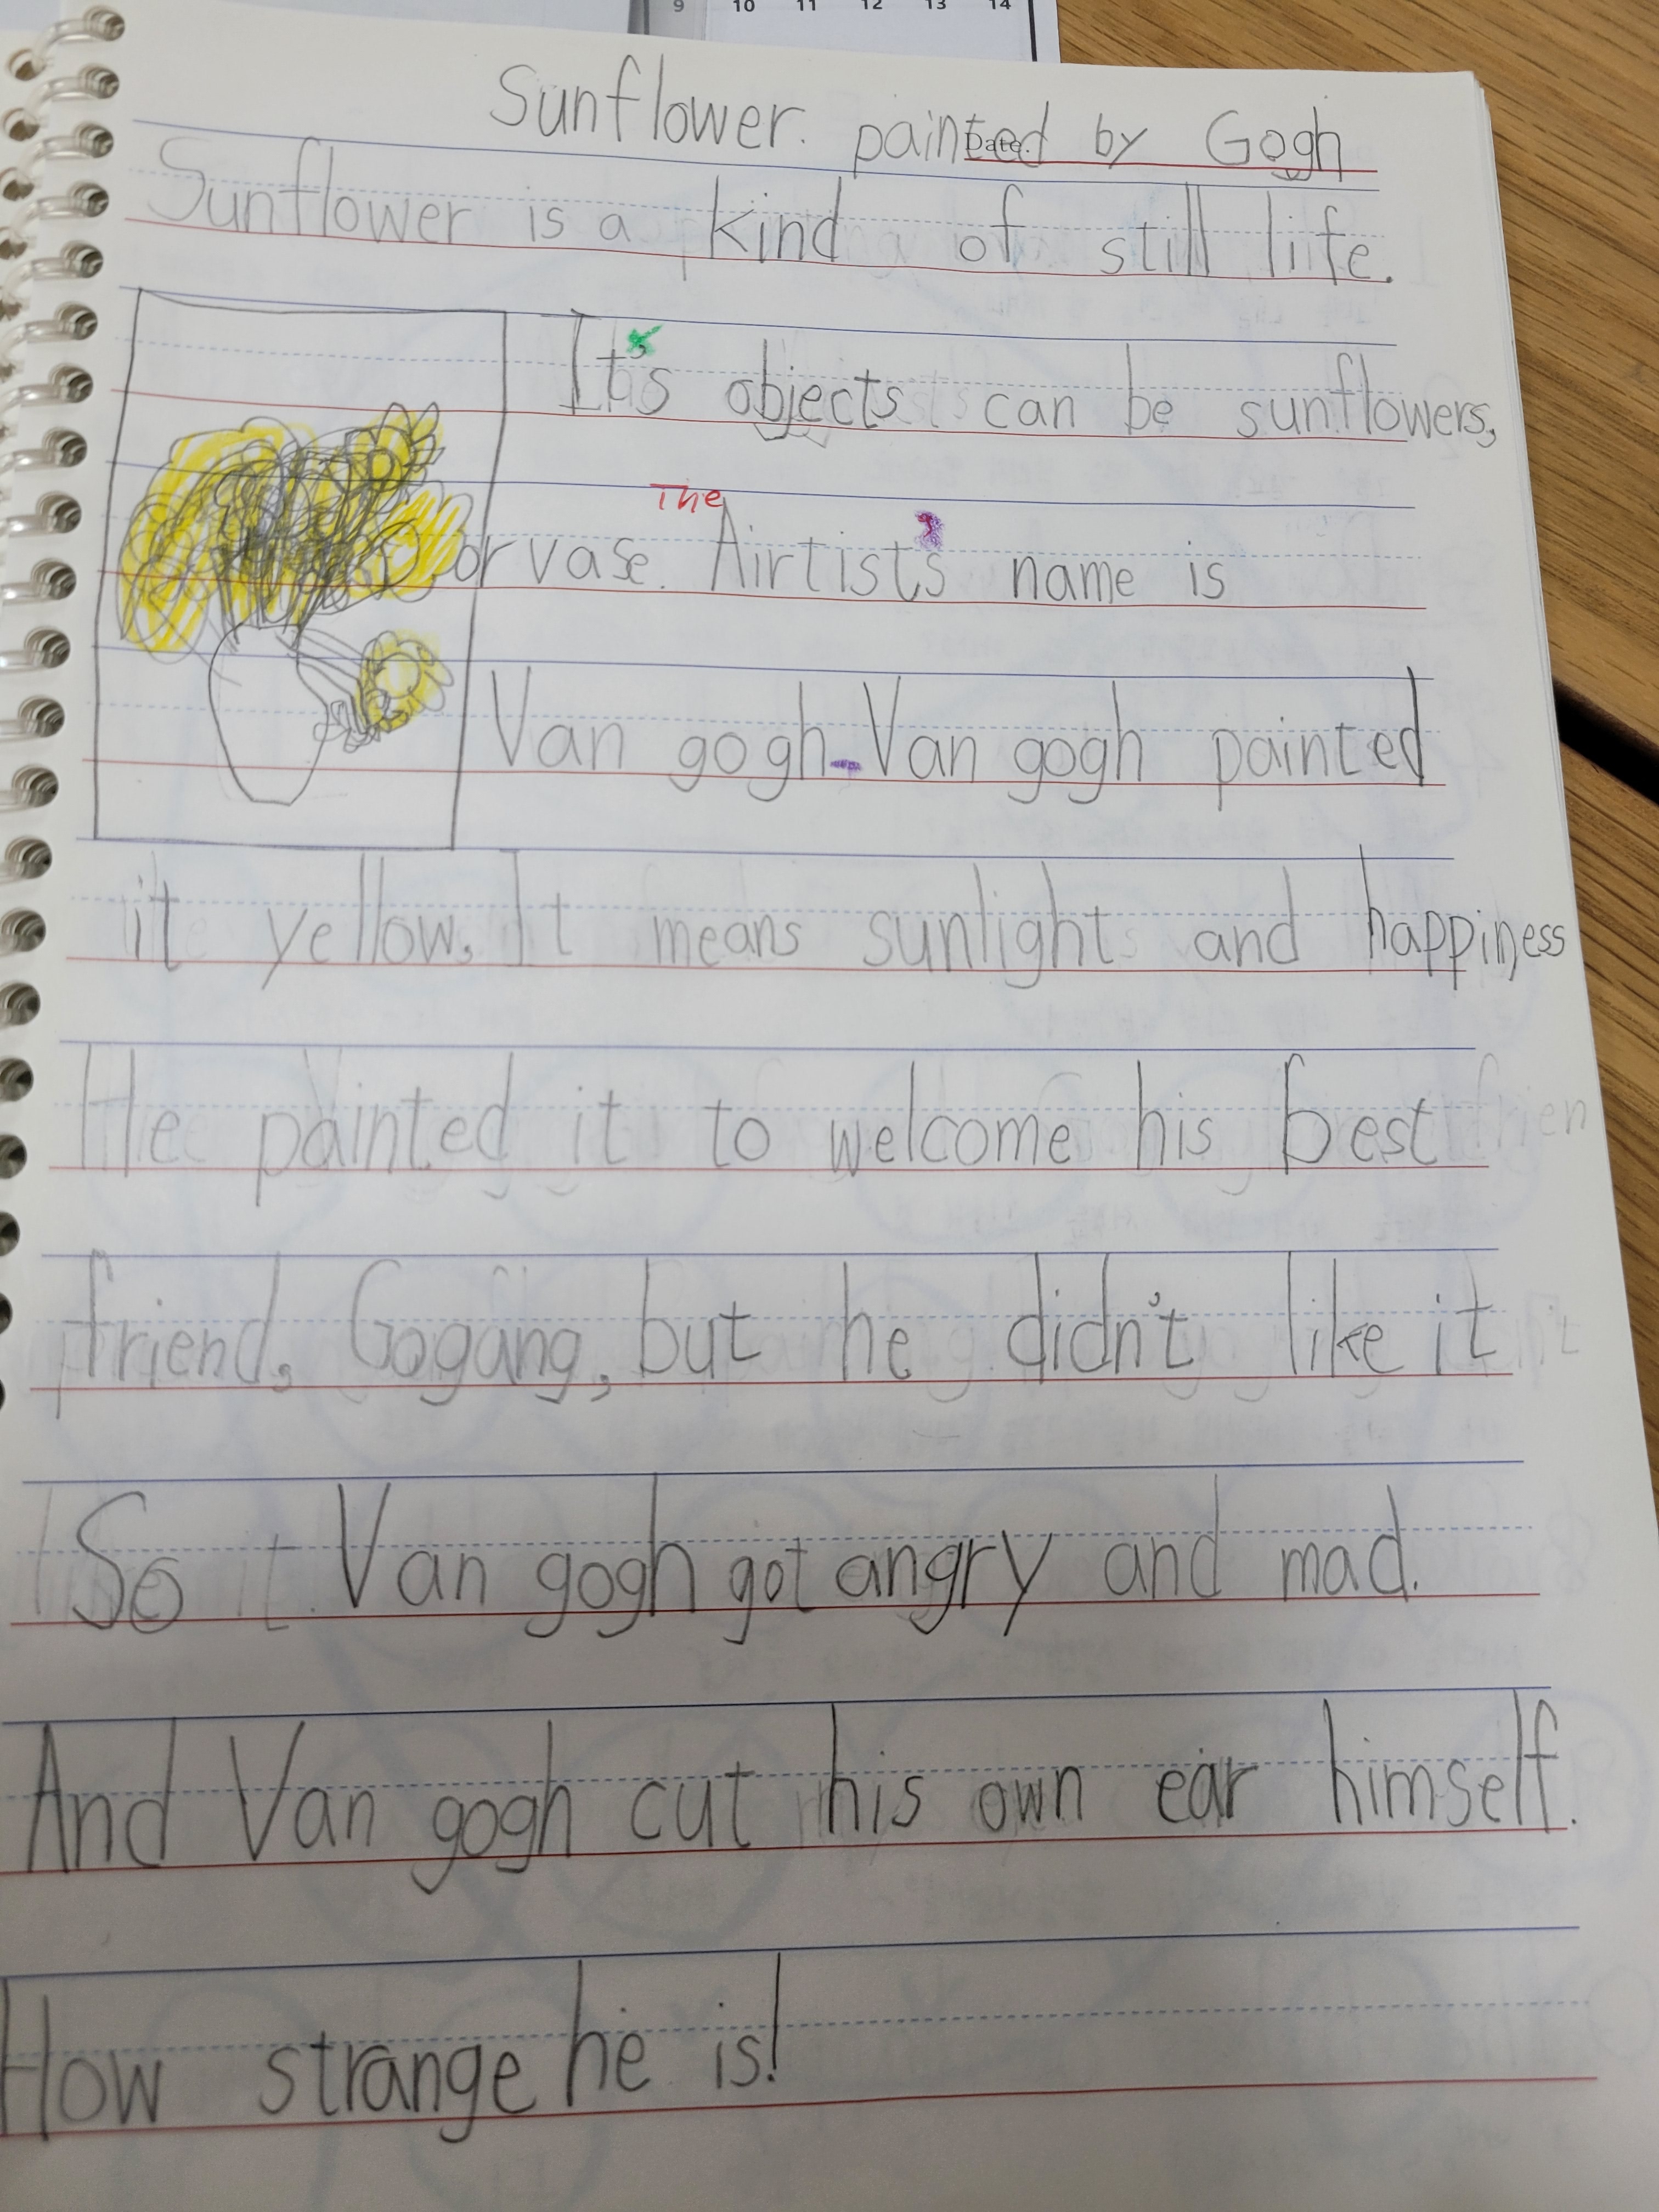 9 10 11 12 13 14
Sunflower. painted by Gogh
Date.
Sunflower is a kind of still liife.
It's objects can be sunflowers,
The
or vase. Airtist's name is
Van gogh. Van gogh painted
it yellow. It means sunlight and happiness
He painted it to welcome his best
friend, Gogang, but he didn't like it
So Van gogh got angry and mad.
And Van gogh cut his own ear himself.
How strange he is!